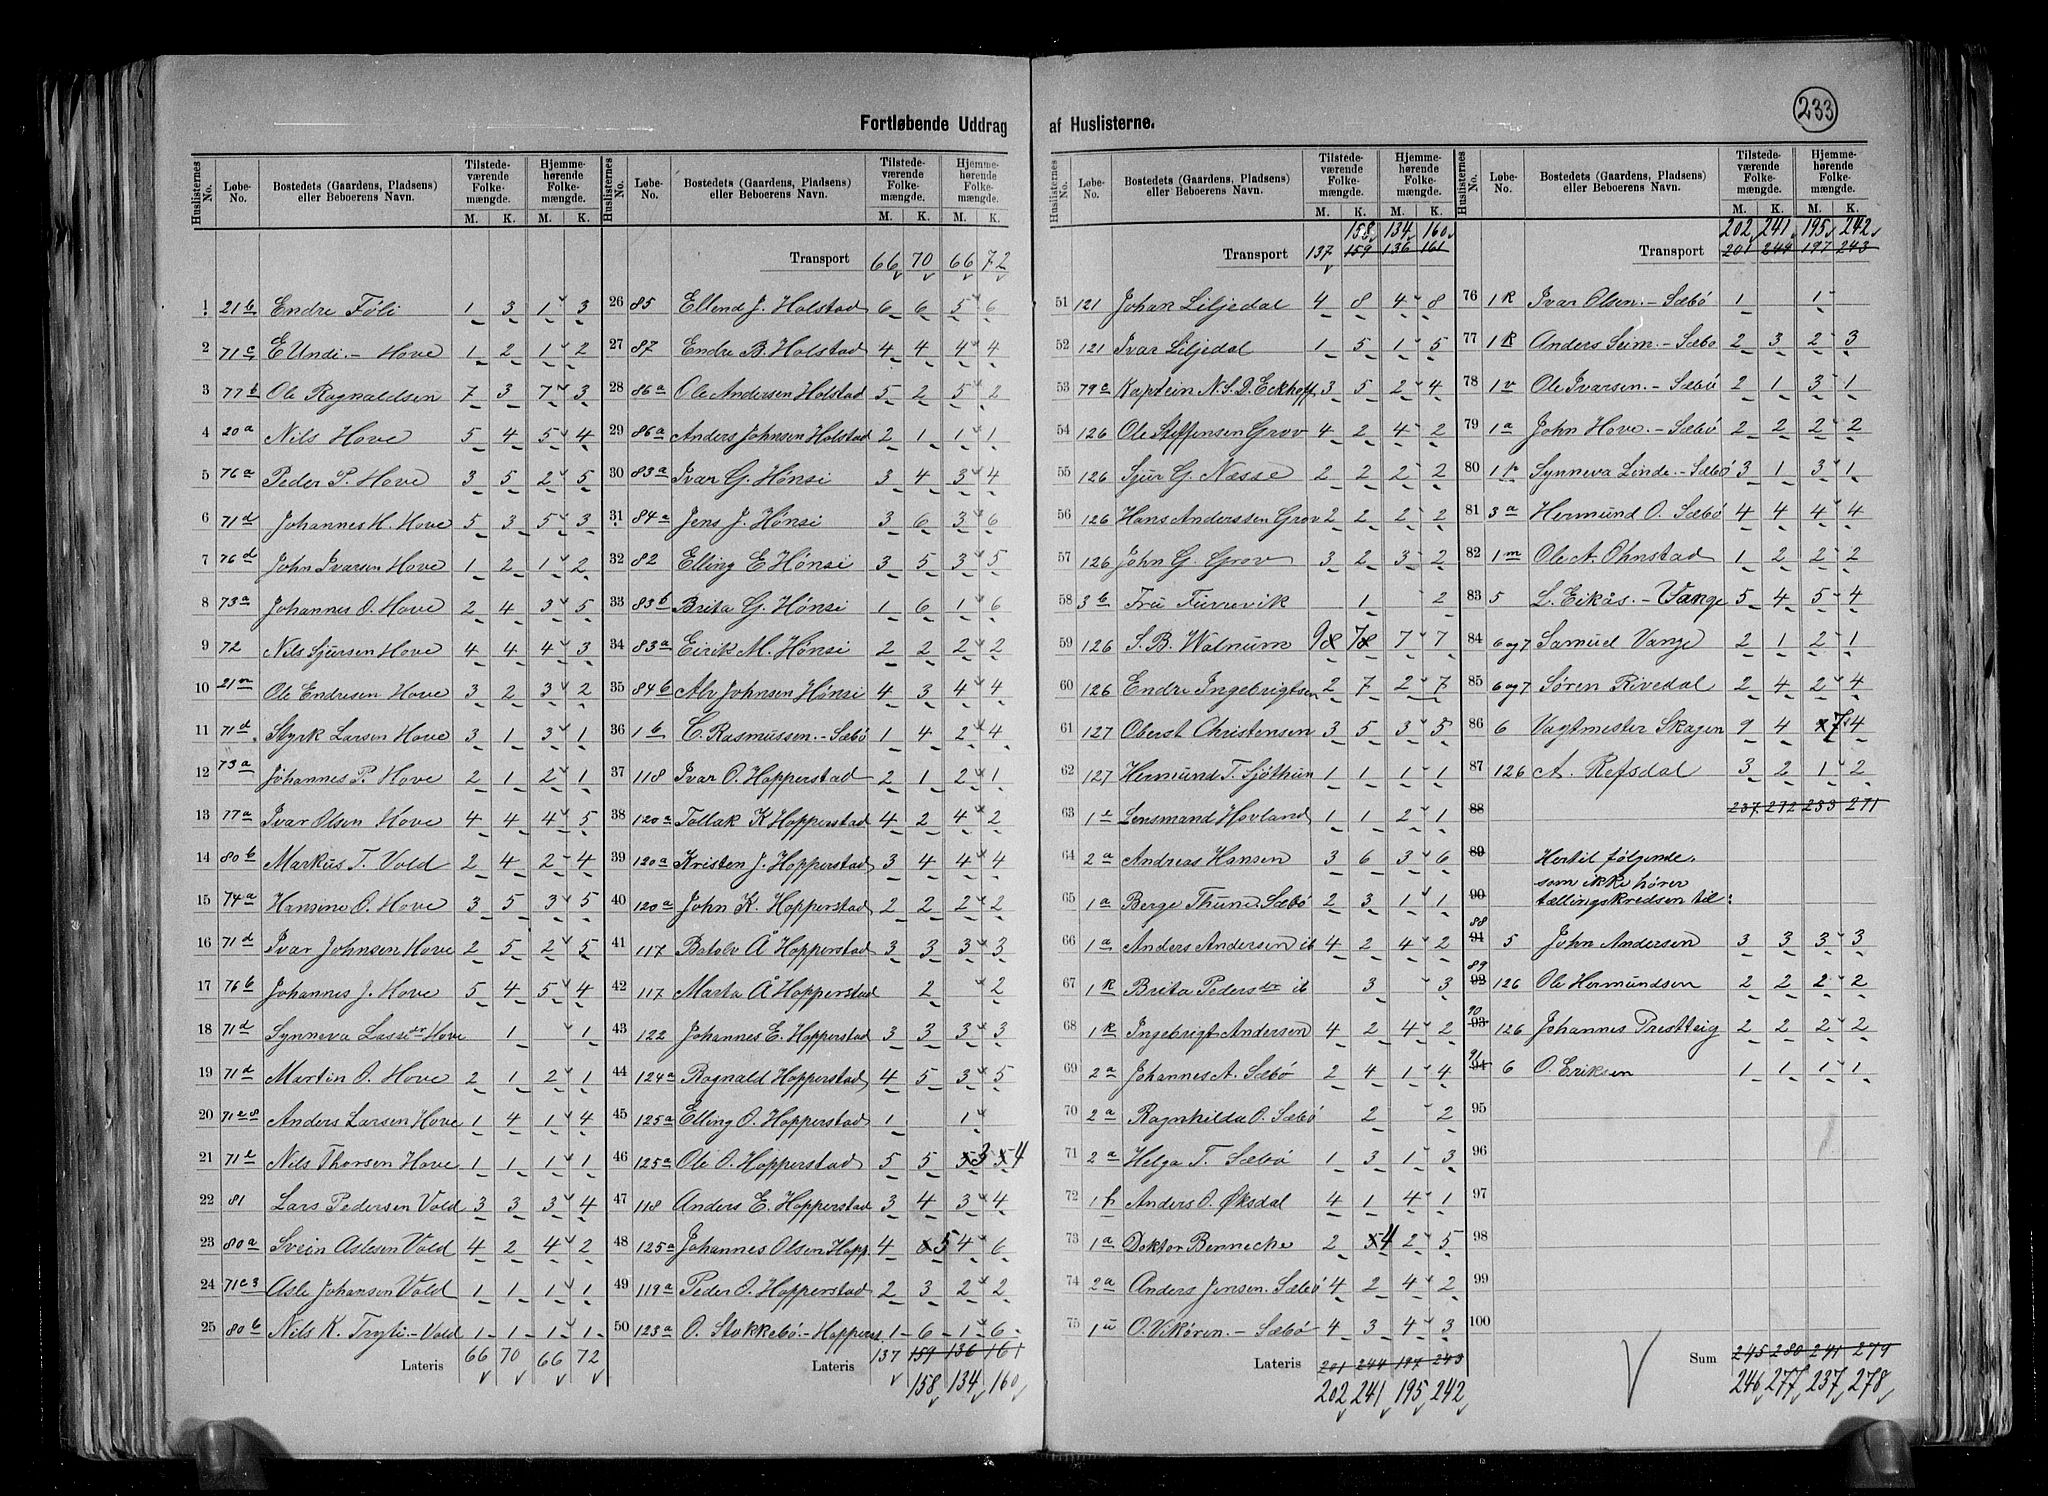 233
Fortløbende Uddrag af Huslisterne.
Huslisternes No. | Løbe-No. | Bostedets (Gaardens, Pladsens) eller Beboerens Navn. | Tilstedeværende Folkemængde. M. K. | Hjemmehørende Folkemængde. M. K.
1 21b Endre Föli 1 3 1 3
2 71c E Undi.- Hove 1 2 1 2
3 77b Ole Ragnaldsen 7 3 7 3
4 20a Nils Hove 5 4 5 4
5 76a Peder P. Hove 3 5 2 5
6 71d Johannes H. Hove 5 3 5 3
7 76d John Ivarsen Hove 1 2 1 2
8 73a Johannes O. Hove 2 4 3 5
9 72 Nils Sjursen Hove 4 4 4 3
10 21n Ole Endresen Hove 3 2 3 2
11 71d Styrk Larsen Hove 3 1 3 1
12 73a Johannes P. Hove 2 1 2 1
13 77a Ivar Olsen Hove 4 4 4 5
14 80b Markus T. Vold 2 4 2 4
15 74a Hansine O. Hove 3 5 3 5
16 71d Ivar Johnsen Hove 2 5 2 5
17 76b Johannes J. Hove 5 4 5 4
18 71d Synneva Lassedr Hove 1 1
19 71d Martin O. Hove 2 1 2 1
20 71e8 Anders Larsen Hove 1 4 1 4
21 71e Nils Thorsen Hove 1 1 1 1
22 81 Lars Pedersen Vold 3 3 3 4
23 80a Svein Aslesen Vold 4 2 4 2
24 71c3 Asle Johansen Vold 1 1 1 1
25 80b Nils K. Tryti - Vold 1 1 1 1
Lateris 66 70 66 72
Huslisternes No. | Løbe-No. | Bostedets (Gaardens, Pladsens) eller Beboerens Navn. | Tilstedeværende Folkemængde. M. K. | Hjemmehørende Folkemængde. M. K.
Transport 66 70 66 72
26 85 Ellend J. Holstad 6 6 5 6
27 87 Endre B. Holstad 4 4 4 4
28 86a Ole Andersen Holstad 5 2 5 2
29 86a Anders Johnsen Holstad 2 1 1 1
30 83a Ivar G. Hønsi 3 4 3 4
31 84a Jens J. Hønsi 3 6 3 6
32 82 Elling E Hønsi 3 5 3 5
33 83b Brita G. Hønsi 1 6 1 6
34 83a Eirik M. Hønsi 2 2 2 2
35 84b Alv Johnsen Hønsi 4 3 4 4
36 1b C. Rasmussen.- Sæbø 1 4 2 4
37 118 Ivar O. Hopperstad 2 1 2 1
38 120a Tollak K Hopperstad 4 2 4 2
39 120a Kristen J. Hopperstad 3 4 4 4
40 120a John K. Hopperstad 2 2 2 2
41 117 Botolv Å Hopperstad 3 3 3 3
42 117 Marta Å Hopperstad 2 2
43 122 Johannes E. Hopperstad 3 3 3 3
44 124a Ragnald Hopperstad 4 5 3 5
45 125a Elling O. Hopperstad 1 1
46 125a Ole O. Hopperstad 5 5 5 3 5 4
47 118 Anders E. Hopperstad 3 4 3 4
48 125a Johannes Olsen Hopp. 4 6 5 4 6
49 119a Peder O. Hopperstad 2 3 2 2
50 123a O. Stokkebö.- Hopperst. 1 6 1 6
Lateris 137 159 136 161
158 134 160
Huslisternes No. | Løbe-No. | Bostedets (Gaardens, Pladsens) eller Beboerens Navn. | Tilstedeværende Folkemængde. M. K. | Hjemmehørende Folkemængde. M. K.
158 134 160
Transport 137 159 136 161
51 121 Johan Liljedal 4 8 4 8
52 121 Ivar Liljedal 1 5 1 5
53 79a Kaptein N.S.D. Eckhoff 3 5 2 4
54 126 Ole Steffensen Grov 4 2 4 2
55 126 Sjur G. Næsse 2 2 2 2
56 126 Hans Anderssen Grov 2 2 2 2
57 126 John G. Grov 3 2 3 2
58 3b Fru Furrevik 1 2
59 126 S. B. Walnum 9 8 7 8 7 7
60 126 Endre Ingebrigtsen 2 7 2 7
61 127 Oberst Christensen 3 5 3 5
62 127 Hermund T. Sjøthun 1 1 1 1
63 1e Lensmand Hovland 1 1 2 1
64 2a Andreas Hansen 3 6 3 6
65 1a Berge Thune, Sæbö 2 3 1 1
66 1a Anders Andersen ib 4 2 4 2
67 1k Brita Pedersdtr ib 3 3
68 1k Ingebrigt Andersen 4 2 4 2
69 2a Johannes A. Sæbö 2 4 1 4
70 2a Ragnhilda O. Sæbö 2 2
71 2a Helga T. Sæbö 1 3 1 3
72 Anders O. Øksdal 4 1 4 1
73 1a Doktor Benneche 2 5 4 2 5
74 2a Anders Jensen. Sæbö 4 2 4 2
75 1u O. Vikören.- Sæbö 4 3 4 3
Lateris 201 244 197 243
202 241 195 242
Huslisternes No. | Løbe-No. | Bostedets (Gaardens, Pladsens) eller Beboerens Navn. | Tilstedeværende Folkemængde. M. K. | Hjemmehørende Folkemængde. M. K.
202 241 195 242
Transport 201 244 197 243
76 1k Ivar Olsen.- Sæbö 1 1
77 1k Anders Seim.- Sæbö 2 3 2 3
78 1v Ole Ivarsen.- Sæbö 2 1 3 1
79 1a John Hove.- Sæbö 2 2 2 2
80 Synneva Linde.- Sæbö 3 1 3 1
81 3a Hermund O. Sæbö 4 4 4 4
82 1m Ole A. Ohnstad 1 2 2 2
83 5 L. Eikås.- Vange 5 4 5 4
84 6og7 Samuel Vange 2 1 2 1
85 6og7 Søren Rivedal 2 4 2 4
86 6 Vagtmester Skagen 9 4 7 4
87 126 A. Refsdal 3 2 1 2
88 237 272 233 271
89 Hertil følgende
som ikke hører
90 tællingskredsen til:
88 91 5 John Andersen 3 3 3 3
89 92 126 Ole Hermundsen 2 2 2 2
90 93 126 Johannes Prestteig 2 2 2 2
91 94 6 O. Eriksen 1 1 1 1
95
96
97
98
99
100
Sum 245 280 241 279
246 277 237 278